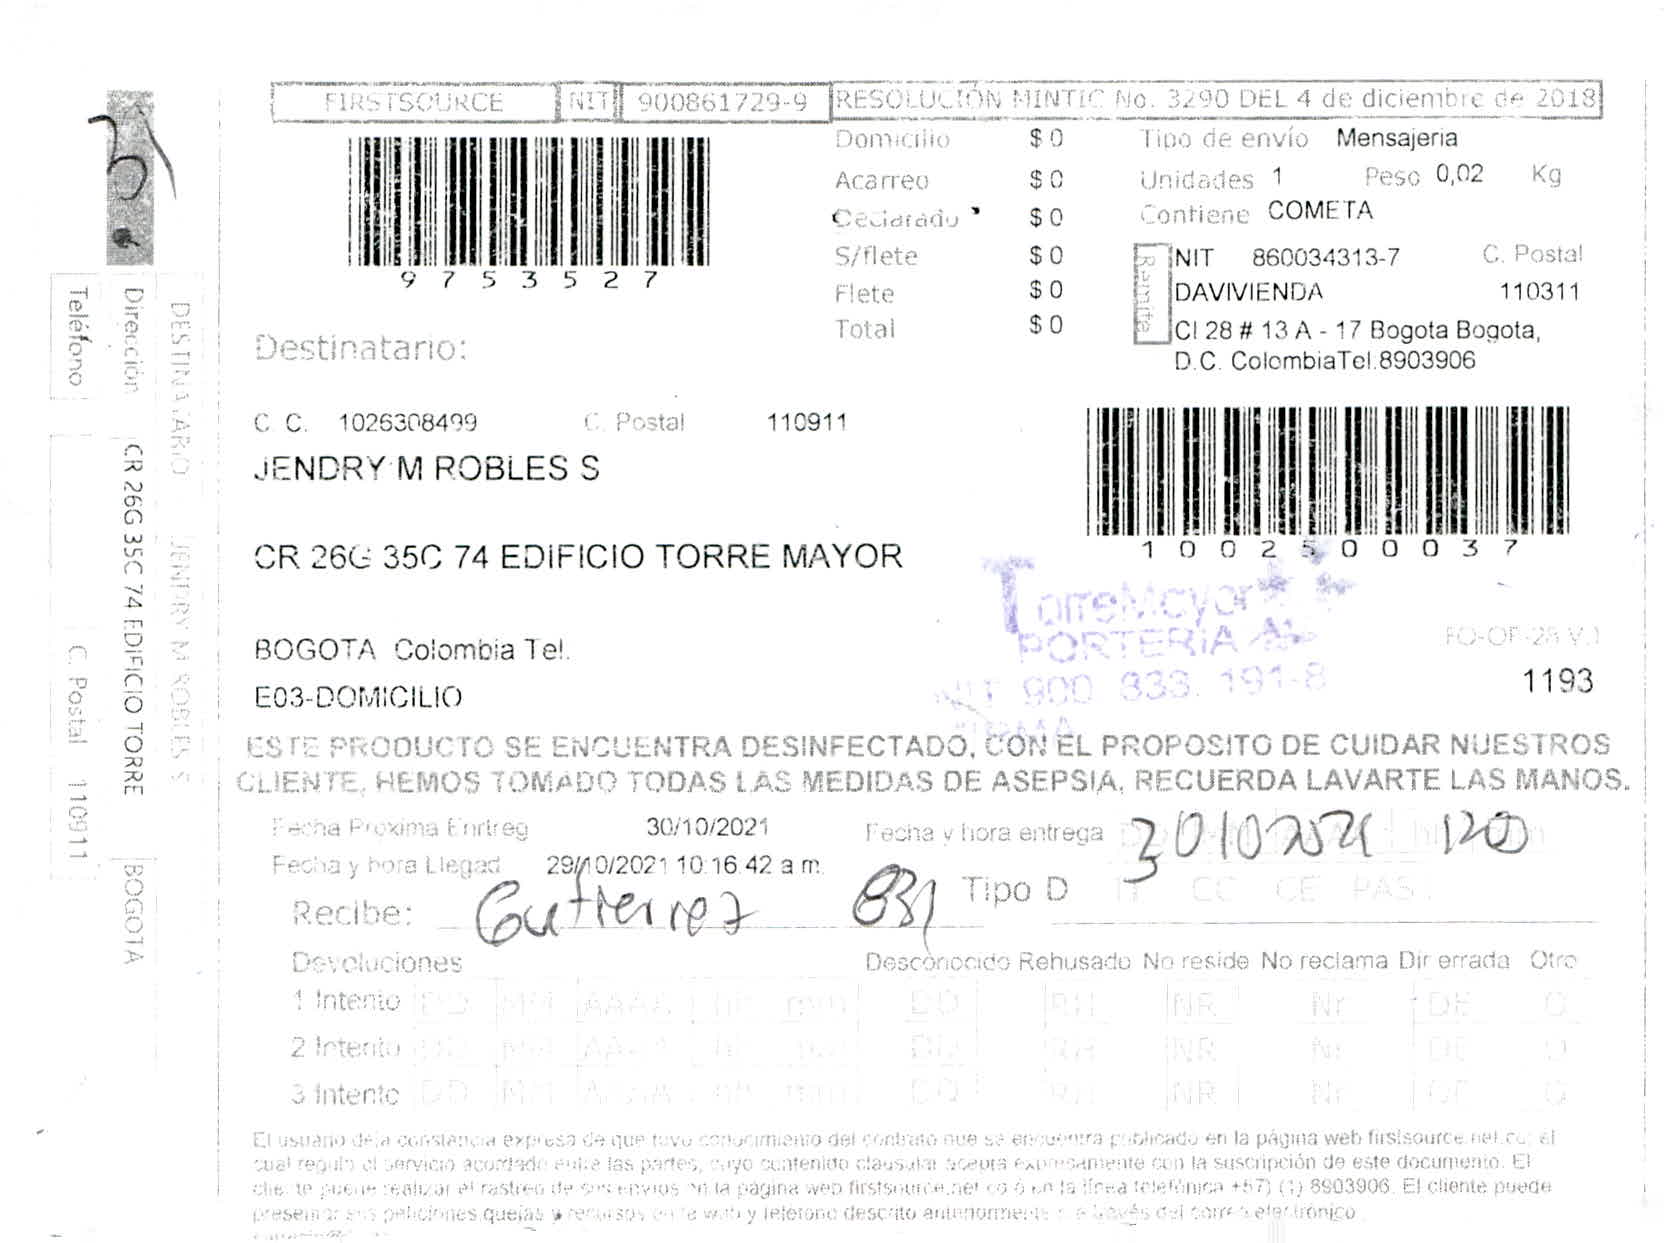 FIRSTSOURCE NIT 900861729-9 RESOLUCIÓN MINTIC No. 3290 DEL 4 de diciembre de 2018
9753527
Domicilio $ 0
Acarreo $ 0
Declarado $ 0
S/flete $ 0
Flete $ 0
Total $ 0
Tipo de envío Mensajeria
Unidades 1 Peso 0,02 Kg
Contiene COMETA
Remite
NIT 860034313-7 C. Postal
DAVIVIENDA 110311
Cl 28 # 13 A - 17 Bogota Bogota,
D.C. ColombiaTel:8903906
Destinatario:
C. C. 1026308499 C. Postal 110911
JENDRY M ROBLES S
CR 26G 35C 74 EDIFICIO TORRE MAYOR
BOGOTA Colombia Tel.
E03-DOMICILIO
10025000037
TorreMayor
PORTERIA
NIT 900 833. 191-8
FIRMA
FO-OP-28 V.1
1193
ESTE PRODUCTO SE ENCUENTRA DESINFECTADO, CON EL PROPOSITO DE CUIDAR NUESTROS
CLIENTE, HEMOS TOMADO TODAS LAS MEDIDAS DE ASEPSIA, RECUERDA LAVARTE LAS MANOS.
Fecha Proxima Enrtreg 30/10/2021 Fecha y hora entrega 30102021 120
Fecha y hora Llegad 29/10/2021 10:16:42 a.m.
Recibe: Gutierrez 831 Tipo D TI CC CE PAS
Devoluciones Desconocido Rehusado No reside No reclama Dir errada Otro
1 Intento DD MM AAAA hh mm DD RH NR Nr DE O
2 Intento DD MM AAAA hh mm DD RH NR Nr DE O
3 Intento DD MM AAAA hh mm DD RH NR Nr DE O
El usuario deja constancia expresa de que tuvo conocimiento del contrato que se encuentra publicado en la página web firstsource.net.co; el
cual regula el servicio acordado entre las partes, cuyo contenido clausular acepta expresamente con la suscripción de este documento. El
cliente puede realizar el rastreo de sus envios en la página web firstsource.net.co ó en la línea telefónica +57) (1) 8903906. El cliente puede
presentar sus peticiones quejas y recursos en la web y telefono descrito anteriormente o a través del correo electrónico
DESTINATARIO JENDRY M ROBLES S
Dirección CR 26G 35C 74 EDIFICIO TORRE BOGOTA
Teléfono C. Postal 110911